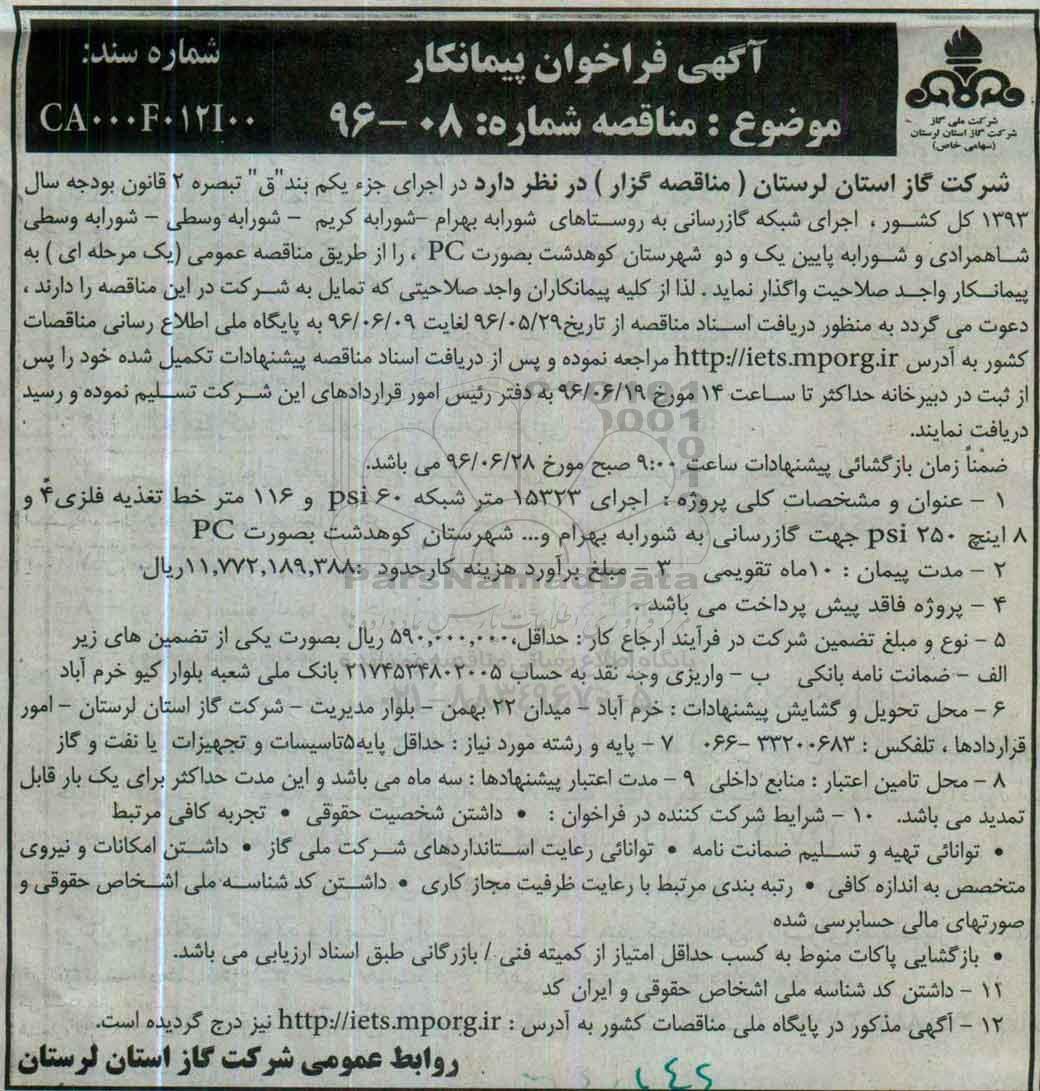 آگهی فراخوان پیمانکار
موضوع : مناقصه شماره: ۰۸ -۹۶
شماره سند:
CA۰۰۰F۰۱۲I۰۰
شرکت ملی گاز
شرکت گاز استان لرستان
(سهامی خاص)
شرکت گاز استان لرستان ( مناقصه گزار ) در نظر دارد در اجرای جزء یکم بند"ق" تبصره ۲ قانون بودجه سال
۱۳۹۳ کل کشور ، اجرای شبکه گازرسانی به روستاهای شورابه بهرام –شورابه کریم – شورابه وسطی – شورابه وسطی
شاهمرادی و شورابه پایین یک و دو شهرستان کوهدشت بصورت PC ، را از طریق مناقصه عمومی (یک مرحله ای ) به
پیمانکار واجد صلاحیت واگذار نماید . لذا از کلیه پیمانکاران واجد صلاحیتی که تمایل به شرکت در این مناقصه را دارند ،
دعوت می گردد به منظور دریافت اسناد مناقصه از تاریخ۹۶/۰۵/۲۹ لغایت ۹۶/۰۶/۰۹ به پایگاه ملی اطلاع رسانی مناقصات
کشور به آدرس http://iets.mporg.ir مراجعه نموده و پس از دریافت اسناد مناقصه پیشنهادات تکمیل شده خود را پس
از ثبت در دبیرخانه حداکثر تا ساعت ۱۴ مورخ ۹۶/۰۶/۱۹ به دفتر رئیس امور قراردادهای این شرکت تسلیم نموده و رسید
دریافت نمایند.
ضمناً زمان بازگشائی پیشنهادات ساعت ۹:۰۰ صبح مورخ ۹۶/۰۶/۲۸ می باشد.
۱ – عنوان و مشخصات کلی پروژه : اجرای ۱۵۳۲۳ متر شبکه ۶۰ psi و ۱۱۶ متر خط تغذیه فلزی۴ و
۸ اینچ ۲۵۰ psi جهت گازرسانی به شورابه بهرام و... شهرستان کوهدشت بصورت PC
۲ – مدت پیمان : ۱۰ماه تقویمی ۳ – مبلغ برآورد هزینه کارحدود :۱۱,۷۷۲,۱۸۹,۳۸۸ریال
۴ – پروژه فاقد پیش پرداخت می باشد .
۵ – نوع و مبلغ تضمین شرکت در فرآیند ارجاع کار : حداقل،۵۹۰,۰۰۰,۰۰۰ ریال بصورت یکی از تضمین های زیر
الف – ضمانت نامه بانکی ب – واریزی وجه نقد به حساب ۲۱۷۴۵۳۴۸۰۲۰۰۵ بانک ملی شعبه بلوار کیو خرم آباد
۶ – محل تحویل و گشایش پیشنهادات : خرم آباد – میدان ۲۲ بهمن – بلوار مدیریت – شرکت گاز استان لرستان – امور
قراردادها ، تلفکس : ۳۳۲۰۰۶۸۳ -۰۶۶ ۷ – پایه و رشته مورد نیاز : حداقل پایه۵تاسیسات و تجهیزات یا نفت و گاز
۸ – محل تامین اعتبار : منابع داخلی ۹ – مدت اعتبار پیشنهادها : سه ماه می باشد و این مدت حداکثر برای یک بار قابل
تمدید می باشد. ۱۰ – شرایط شرکت کننده در فراخوان : • داشتن شخصیت حقوقی • تجربه کافی مرتبط
• توانائی تهیه و تسلیم ضمانت نامه • توانائی رعایت استانداردهای شرکت ملی گاز • داشتن امکانات و نیروی
متخصص به اندازه کافی • رتبه بندی مرتبط با رعایت ظرفیت مجاز کاری • داشتن کد شناسه ملی اشخاص حقوقی و
صورتهای مالی حسابرسی شده
• بازگشایی پاکات منوط به کسب حداقل امتیاز از کمیته فنی / بازرگانی طبق اسناد ارزیابی می باشد.
۱۱ – داشتن کد شناسه ملی اشخاص حقوقی و ایران کد
۱۲ – آگهی مذکور در پایگاه ملی مناقصات کشور به آدرس : http://iets.mporg.ir نیز درج گردیده است.
روابط عمومی شرکت گاز استان لرستان
ParsNamadData